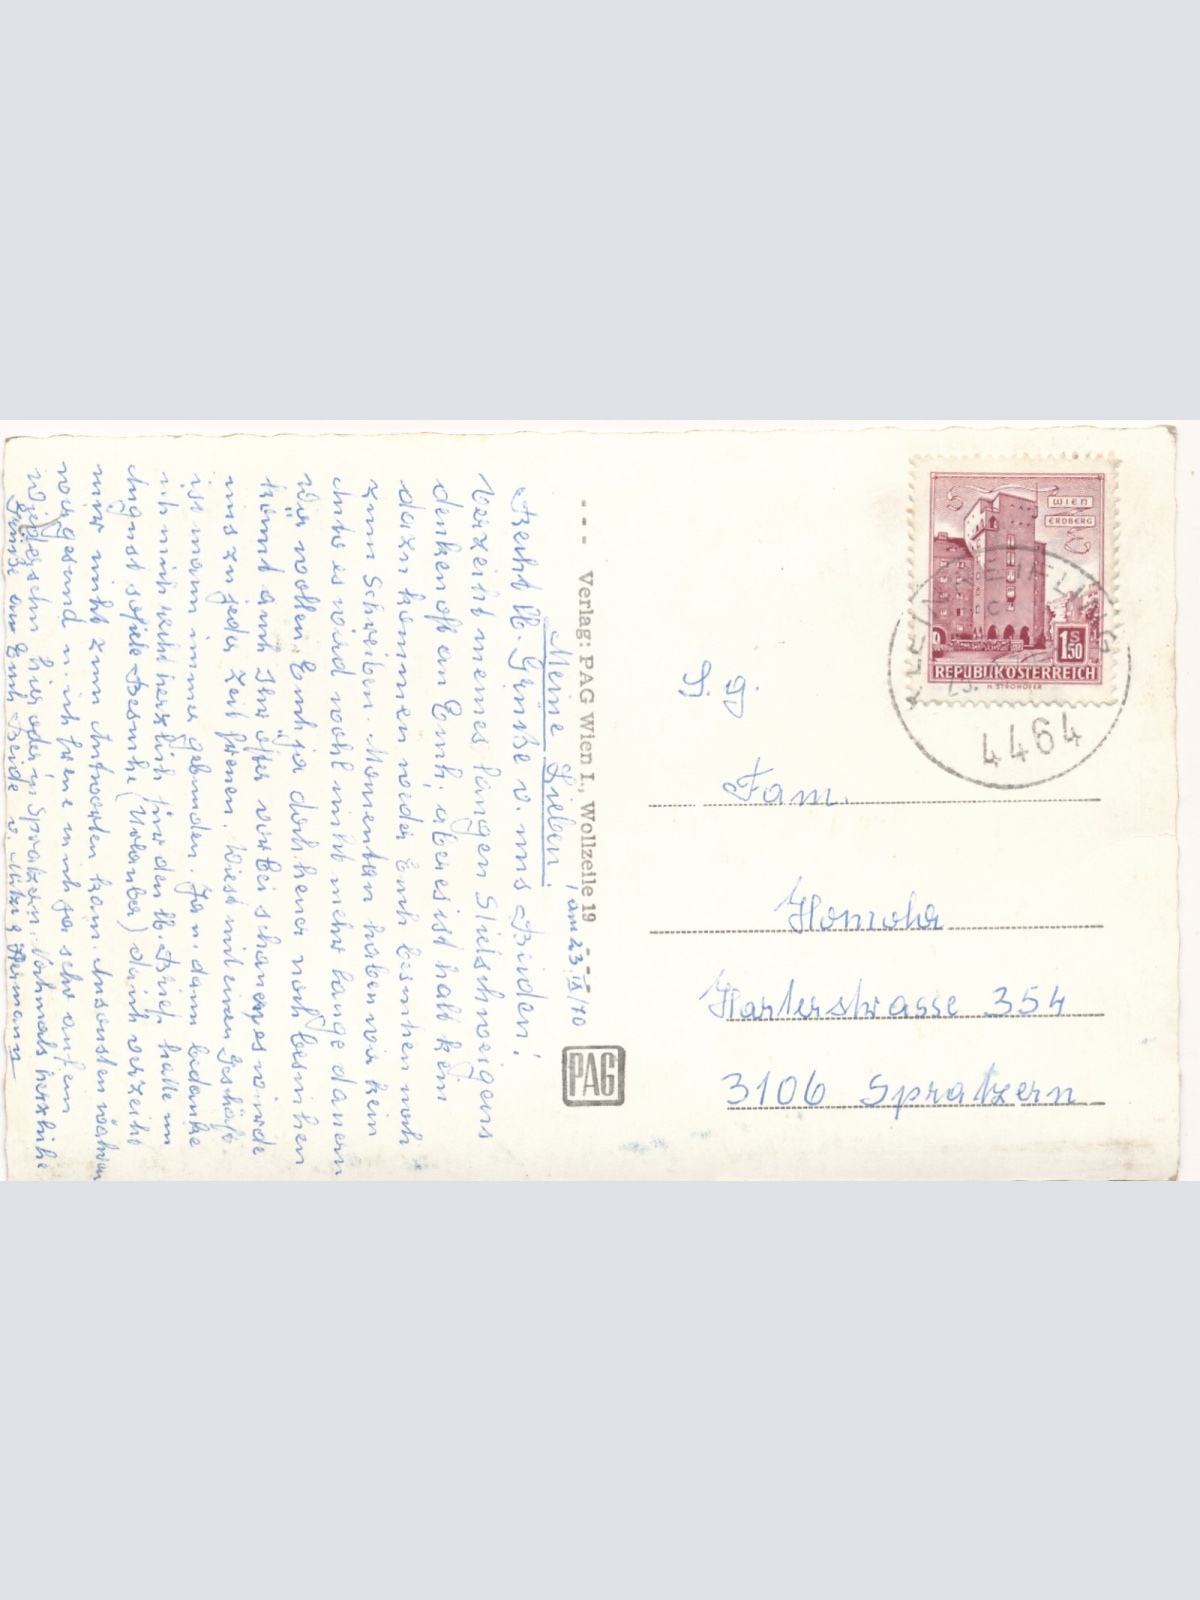 am 23.IX/70
Meine Lieben!
Recht lb. Grüße v. uns Beiden!
Verzeiht meines langen Stielschweigens
denken oft an Euch, aber es ist halt kein
dazu kommen weder Euch besuchen noch
zum Schreiben. Momentan haben wir kein
Auto es wird wohl nicht mehr lange dauern
Wir wollen Euch ja doch heuer noch besuchen
könnt auch Ihr öfter vorbei schauen, es würde
uns zu jeder Zeit freuen. Wiest mit einen Geschäft
ist mann immer gebunden. Ja u. dann bedanke
ich mich recht herzlich für den lb. Brief hatte im
August sofiele Besuche (Urlauber) daich verzeiht
mir nicht zum Antworten kam. Ansonsten wären
wir gesund u. ich freue mich ja sehr auf ein
Wiedersehn hier oder in Spratzern. Nochmals herzliche
Grüße an Euch Beide v. Hermann
Verlag: PAG Wien I., Wollzeile 19
PAG
WIEN
ERDBERG
S
1 50
REPUBLIK ÖSTERREICH
H. STROHOFER
23.
4464
S. g.
Fam.
Harterstrasse 354
3106 Spratzern